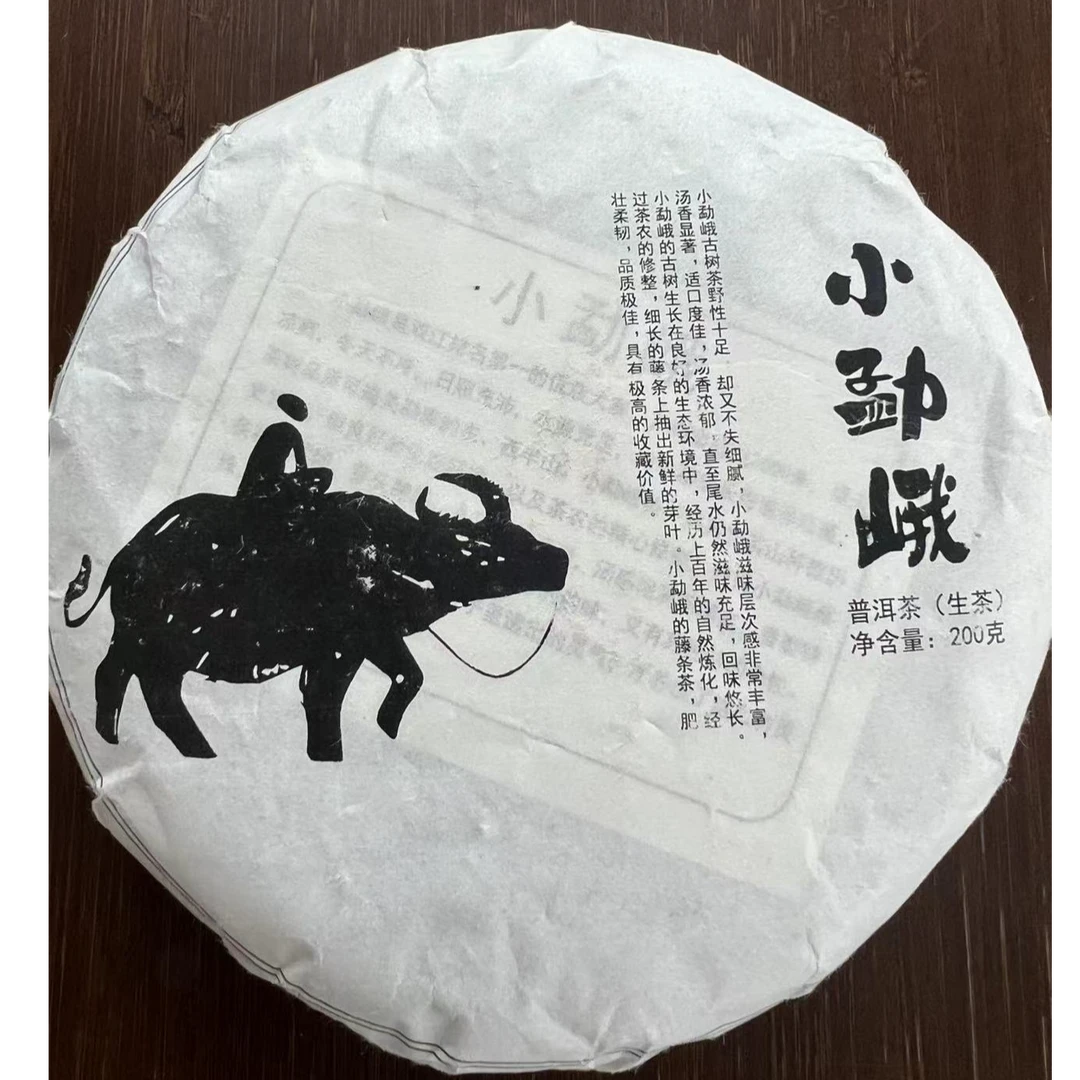 小勐峨
普洱茶（生茶）
净含量：200克
小勐峨古树茶野性十足 却又不失细腻，小勐峨滋味层次感非常丰富，
汤香显著，适口度佳，汤香浓郁，直至尾水仍然滋味充足，回味悠长。
小勐峨的古树生长在良好的生态环境中，经历上百年的自然炼化，经
过茶农的修整，细长的藤条上抽出新鲜的芽叶。小勐峨的藤条茶，肥
壮柔韧，品质极佳，具有极高的收藏价值。
小勐